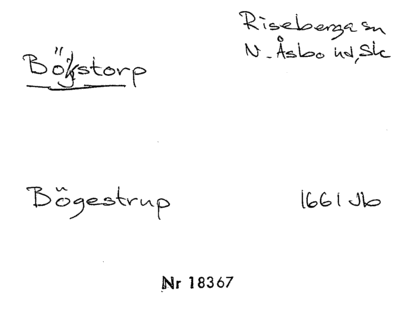 Riseberga sn
N. Åsbo hd, Sk
Bökstorp
Bögestrup 1661 Jb
Nr 18367